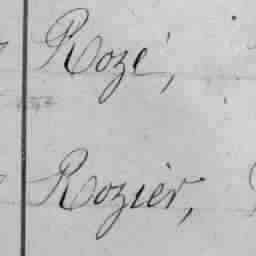 Rozé,
Rozier,